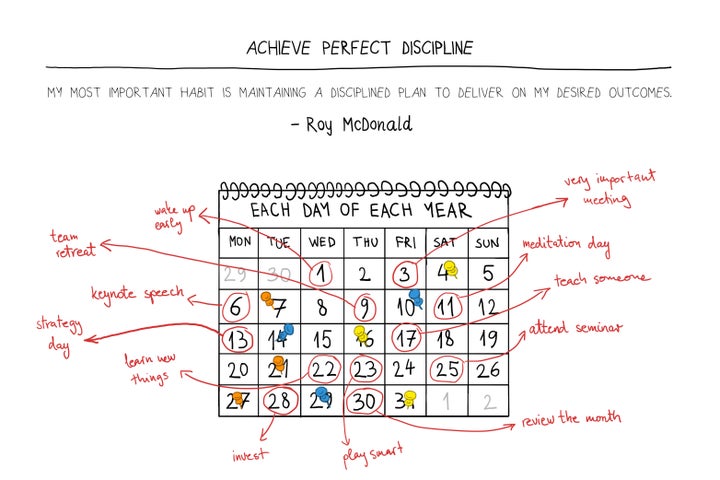 ACHIEVE PERFECT DISCIPLINE
MY MOST IMPORTANT HABIT IS MAINTAINING A DISCIPLINED PLAN TO DELIVER ON MY DESIRED OUTCOMES.
- Roy McDonald
very important
meeting
wake up
early
EACH DAY OF EACH YEAR
team
retreat
MON TUE WED THU FRI SAT SUN
meditation day
29 30 1 2 3 4 5
teach someone
keynote speech
6 7 8 9 10 11 12
strategy
day
attend seminar
13 14 15 16 17 18 19
learn new
things
20 21 22 23 24 25 26
27 28 29 30 31 1 2
review the month
invest
play smart